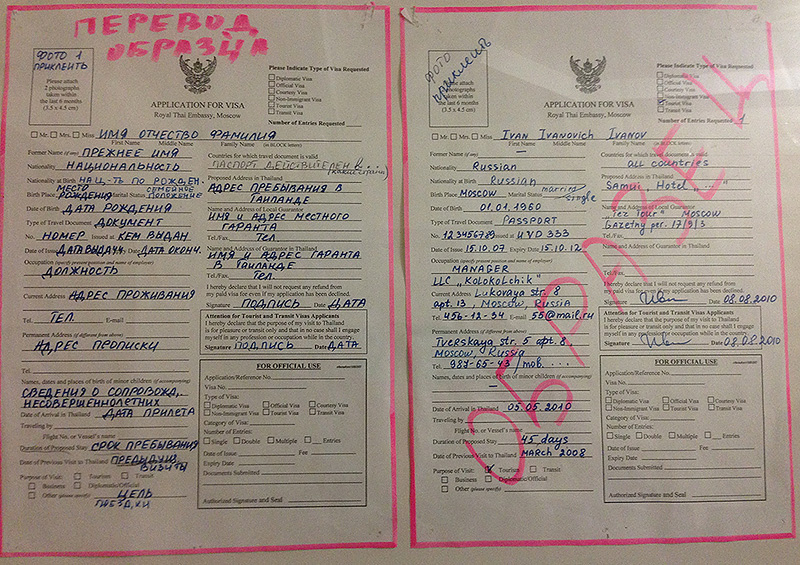 ПЕРЕВОД
ОБРАЗЦА
ФОТО 1
ПРИКЛЕИТЬ
Please attach
2 photographs
taken within
the last 6 months
(3.5 x 4.5 cm)
APPLICATION FOR VISA
Royal Thai Embassy, Moscow
Please Indicate Type of Visa Requested
Diplomatic Visa
Official Visa
Courtesy Visa
Non-Immigrant Visa
Tourist Visa
Transit Visa
Number of Entries Requested
Mr. Mrs. Miss ИМЯ ОТЧЕСТВО ФАМИЛИЯ
First Name Middle Name Family Name (in BLOCK letters)
Former Name (if any) ПРЕЖНЕЕ ИМЯ
Nationality НАЦИОНАЛЬНОСТЬ
Nationality at Birth НАЦ-ТЬ ПО РОЖДЕН.
Birth Place МЕСТО РОЖДЕНИЯ Marital Status СЕМЕЙНОЕ ПОЛОЖЕНИЕ
Date of Birth ДАТА РОЖДЕНИЯ
Type of Travel Document ДОКУМЕНТ
No. НОМЕР Issued at КЕМ ВЫДАН
Date of Issue ДАТА ВЫДАЧИ Date ДАТА ОКОНЧ.
Occupation (specify present position and name of employer)
ДОЛЖНОСТЬ
Current Address АДРЕС ПРОЖИВАНИЯ
Tel. ТЕЛ. E-mail
Permanent Address (if different from above)
АДРЕС ПРОПИСКИ
Tel.
Names, dates and places of birth of minor children (if accompanying)
СВЕДЕНИЯ О СОПРОВОЖД.
НЕСОВЕРШЕННОЛЕТНИХ
Date of Arrival in Thailand ДАТА ПРИЛЕТА
Traveling by
Flight No. or Vessel's name
Duration of Proposed Stay СРОК ПРЕБЫВАНИЯ
Date of Previous Visit to Thailand ПРЕДЫДУЩ. ВИЗИТЫ
Purpose of Visit: Tourism Transit
Business Diplomatic/Official
Other (please specify) ЦЕЛЬ ПОЕЗДКИ
Countries for which travel document is valid
ПАСПОРТ ДЕЙСТВИТЕЛЕН В...
(какие страны)
Proposed Address in Thailand
АДРЕС ПРЕБЫВАНИЯ В
ТАИЛАНДЕ
Name and Address of Local Guarantor
ИМЯ И АДРЕС МЕСТНОГО
ГАРАНТА
Tel./Fax. ТЕЛ
Name and Address of Guarantor in Thailand
ИМЯ И АДРЕС ГАРАНТА
В ТАИЛАНДЕ
Tel./Fax. ТЕЛ.
I hereby declare that I will not request any refund from
my paid visa fee even if my application has been declined.
Signature ПОДПИСЬ Date ДАТА
Attention for Tourist and Transit Visas Applicants
I hereby declare that the purpose of my visit to Thailand
is for pleasure or transit only and that in no case shall I engage
myself in any profession or occupation while in the country.
Signature ПОДПИСЬ Date ДАТА
FOR OFFICIAL USE
Application/Reference No.
Visa No.
Type of Visa:
Diplomatic Visa Official Visa Courtesy Visa
Non-Immigrant Visa Tourist Visa Transit Visa
Category of Visa:
Number of Entries:
Single Double Multiple Entries
Date of Issue Fee
Expiry Date
Documents Submitted
Authorized Signature and Seal
ОБРАЗЕЦ
ФОТО
ПРИКЛЕИТЬ
Please attach
2 photographs
taken within
the last 6 months
(3.5 x 4.5 cm)
APPLICATION FOR VISA
Royal Thai Embassy, Moscow
Please Indicate Type of Visa Requested
Diplomatic Visa
Official Visa
Courtesy Visa
Non-Immigrant Visa
Tourist Visa
Transit Visa
Number of Entries Requested 1
Mr. Mrs. Miss IVAN IVANOVICH IVANOV
First Name Middle Name Family Name (in BLOCK letters)
Former Name (if any) —
Nationality Russian
Nationality at Birth Russian
Birth Place MOSCOW Marital Status married single
Date of Birth 01.01.1960
Type of Travel Document PASSPORT
No. 123456789 Issued at UVD 333
Date of Issue 15.10.07 Expiry Date 15.10.12
Occupation (specify present position and name of employer)
MANAGER
LLC „Kolokolchik"
Current Address Lukovaya str. 8
apt. 13, Moscow, Russia
Tel. 456-12-34 E-mail 55@mail.ru
Permanent Address (if different from above)
Tverskaya str. 5 apt. 8,
Moscow, Russia
Tel. 987-65-43 / mob. ...
Names, dates and places of birth of minor children (if accompanying)
Date of Arrival in Thailand 05.05.2010
Traveling by
Flight No. or Vessel's name
Duration of Proposed Stay 45 days
Date of Previous Visit to Thailand MARCH 2008
Purpose of Visit: Tourism Transit
Business Diplomatic/Official
Other (please specify)
Countries for which travel document is valid
all countries
Proposed Address in Thailand
Samui, Hotel „..."
Name and Address of Local Guarantor
„Tez Tour" Moscow
Gazetny per. 17/9/3
Tel./Fax.
Name and Address of Guarantor in Thailand
Tel./Fax.
I hereby declare that I will not request any refund from
my paid visa fee even if my application has been declined.
Signature Date 08.08.2010
Attention for Tourist and Transit Visas Applicants
I hereby declare that the purpose of my visit to Thailand
is for pleasure or transit only and that in no case shall I engage
myself in any profession or occupation while in the country.
Signature Date 08.08.2010
FOR OFFICIAL USE
Application/Reference No.
Visa No.
Type of Visa:
Diplomatic Visa Official Visa Courtesy Visa
Non-Immigrant Visa Tourist Visa Transit Visa
Category of Visa:
Number of Entries:
Single Double Multiple Entries
Date of Issue Fee
Expiry Date
Documents Submitted
Authorized Signature and Seal